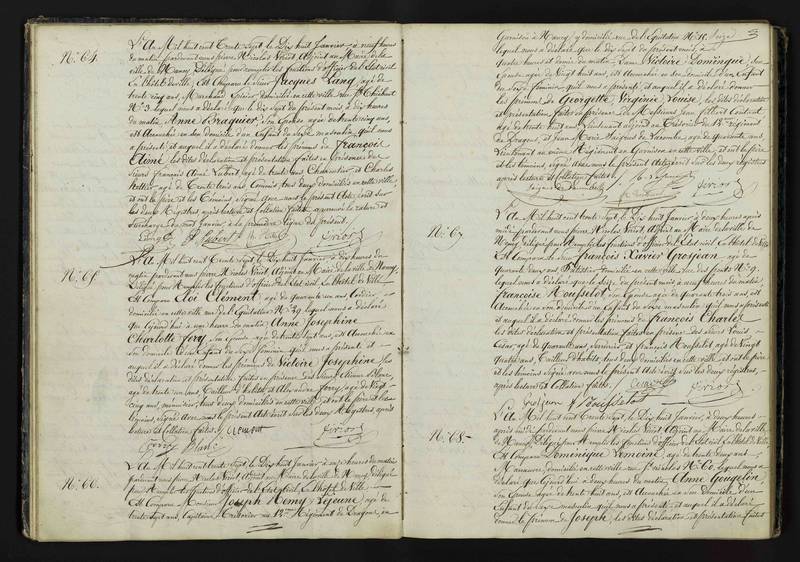 N.° 64.
L'An Mil huit cent Trente Sept, le Dix huit Janvier, à neuf heures
du matin, pardevant nous pierre Nicolas Vériot, Adjoint au Maire de la
ville de Nancy, Délégué pour remplir les fonctions d'officier de l'état civil
à l'hôtel de ville, Est Comparu le sieur Jacques Lang, âgé de
trente cinq ans, Marchand Epicier, domicilié en cette ville, rue St. Thiébaut
N.° 3. lequel nous a déclaré que le dix sept du présent mois, à dix heures
du matin, Anne Braguier, Son Epouse, âgée de trente cinq ans,
est Accouchée en Son domicile d'un Enfant du Sexe masculin, qu'il nous
a présenté et auquel il a déclaré donner les prénoms de François
Aimé, les dites déclaration et présentation faites en présence des
Sieurs François Aimé Hubert, âgé de trente ans, et Charles
âgé de Trente trois ans, Commis, tous deux domiciliés en cette ville,
et ont le père et les témoins, Signé avec nous le présent Acte écrit sur
les deux Registres, après lecture et Collation faites,
N.° 65.
L'An Mil huit cent trente Sept, le Dix huit Janvier, à dix heures du
matin, pardevant nous pierre Nicolas Vériot, Adjoint au Maire de la ville de Nancy,
Délégué pour Remplir les fonctions d'officier de l'état civil, à l'hôtel de Ville,
Est Comparu Eloi Clément, âgé de quarante un ans, Cordier,
domicilié en cette ville rue de l'Equitation N.° 29. lequel nous a déclaré
que Cejourd'hui à une heure du matin, Anne Josephine
Charlotte Ferry, Son épouse âgée de trente Sept ans, est Accouchée en
Son domicile d'un Enfant du Sexe féminin qu'il nous a présenté et
auquel il a déclaré donner les prénoms de Victoire Josephine, les
dites déclaration et présentation faites en présence des sieurs Etienne
âgé de trente un ans, Tailleur d'habits, et Alexandre Ferry, âgé de Vingt
cinq ans, menuisier, tous deux domiciliés en cette ville, et ont le père et les
témoins, signé avec nous le présent Acte écrit sur les deux Registres, après
lecture et Collation faites. Clement
Ferry Vériot
N.° 66.
L'An Mil huit cent trente Sept, le Dix huit Janvier, à onze heures du matin,
pardevant nous pierre Nicolas Vériot, Adjoint au Maire de la ville de Nancy, délégué
pour Remplir les fonctions d'officier de l'état civil, à l'hôtel de Ville,
Est Comparu Monsieur Joseph Remy Lejeune, âgé de
trente Sept ans, Capitaine Trésorier au 12.me Régiment de Dragons, en
3
Garnison à Nancy, y domicilié rue de l'Equitation N.° 18.
lequel nous a déclaré que le dix Sept du présent mois, à
quatre heures et demie du matin, Dame Victoire Dominique, Son
Epouse, âgée de Vingt huit ans, est Accouchée en Son domicile d'un Enfant
du Sexe féminin qu'il nous a présenté et auquel il a déclaré donner
les prénoms de Georgette Virginie Louise, les dites déclaration
et présentation faites en présence de Messieurs Jean Gilbert
âgé de trente huit ans, Lieutenant adjoint au Trésorier du 12.me Régiment
de Dragons, et Jean Marie âgé de quarante ans,
Lieutenant au même Régiment en Garnison en cette ville, et ont le père
et les témoins, signé avec nous le présent Acte écrit sur les deux registres,
après lecture et Collation faites.
Vériot
N.° 67.
L'An Mil huit cent trente Sept, le Dix huit Janvier à deux heures après
midi, pardevant nous pierre Nicolas Vériot, Adjoint au Maire de la ville de
Nancy, délégué pour Remplir les fonctions d'officier de l'Etat civil, à l'hôtel de Ville
Est Comparu le Sieur François Xavier Grosjean, âgé de
quarante deux ans, domicilié en cette ville, rue des ponts N.° 9.
lequel nous a déclaré que le Seize du présent mois à neuf heures du matin,
Françoise Rousselot, Son Epouse, âgée de quarante trois ans, est
Accouchée en Son domicile d'un Enfant du Sexe masculin qu'il nous a présenté
et auquel il a déclaré donner les prénoms de François Charles,
les dites déclaration et présentation faites en présence des sieurs Louis
âgé de quarante ans, et François Rousselot, âgé de Vingt
quatre ans, Tailleur d'habits, tous deux domiciliés en cette ville, et ont le père
et les témoins signé avec nous le présent Acte écrit sur les deux registres,
après lecture et Collation faites.
Vériot
Grosjean f Rousselot
N.° 68.
L'An Mil huit cent trente Sept, le Dix huit Janvier, à deux heures
après midi, pardevant nous pierre Nicolas Vériot, Adjoint au Maire de la ville
de Nancy, Délégué pour Remplir les fonctions d'officier de l'Etat civil, à l'hôtel de Ville
Est Comparu Dominique Lemoine, âgé de trente deux ans,
Manoeuvre, domicilié en cette ville, rue St. Nicolas N.° 60, lequel nous a
déclaré que Cejourd'hui à deux heures du matin, Anne Gougelin,
Son Epouse âgée de trente huit ans, est Accouchée en Son domicile d'un
Enfant du Sexe masculin qu'il nous a présenté et auquel il a déclaré
donner le prénom de Joseph, les dites déclaration et présentation faites